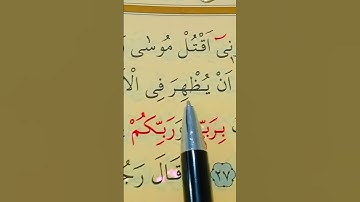 نٖٓى اَقْتُلْ مُوسٰى
اَنْ يُظْهِرَ فِى الْاَ
بِرَبّٖ وَرَبِّكُمْ
٢٧ قَالَ رَجُ